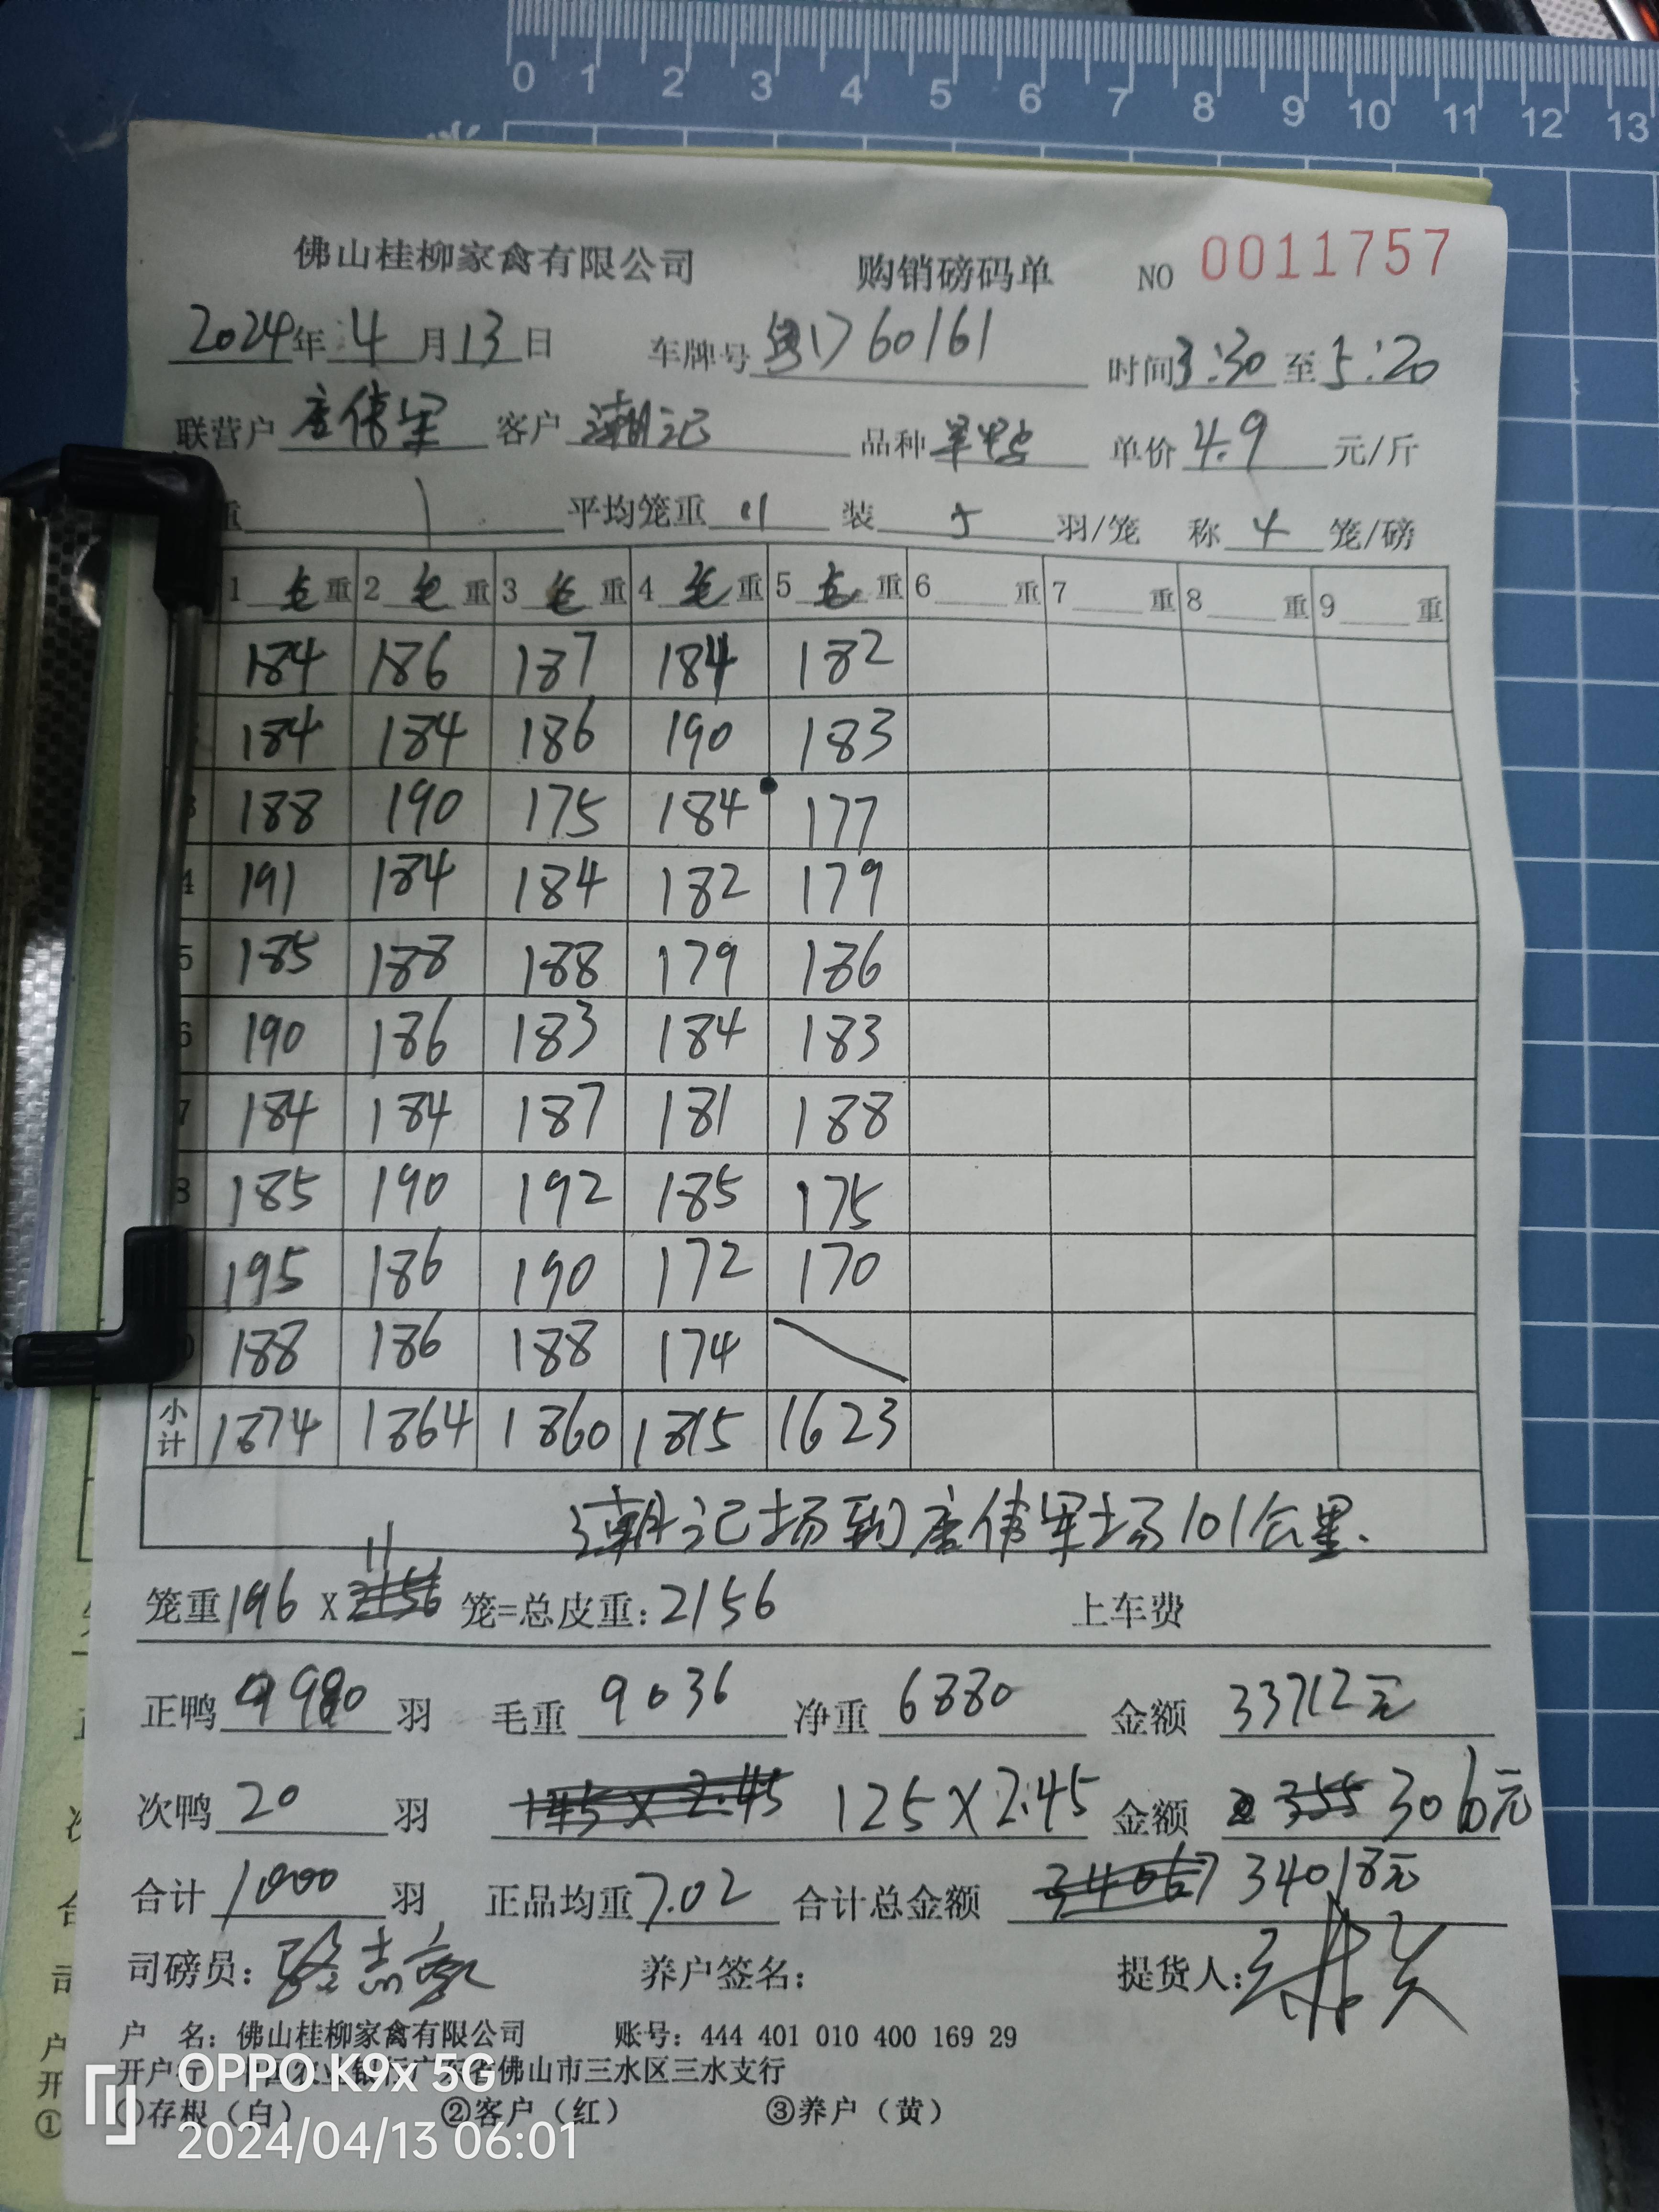 0 1 2 3 4 5 6 7 8 9 10 11 12 13
佛山桂柳家禽有限公司 购销磅码单 NO 0011757
2024年4月13日 车牌号 粤D60161 时间3:30至5:20
联营户 唐伟军 客户 潮记 品种 单价 4.9 元/斤
重 平均笼重 11 装 5 羽/笼 称 4 笼/磅
1 毛重 2 毛重 3 毛重 4 毛重 5 毛重 6 重 7 重 8 重 9 重
184 186 187 184 182
184 184 186 190 183
3 188 190 175 184 177
4 191 184 184 182 179
5 185 188 188 179 186
6 190 186 183 184 183
7 184 184 187 181 188
8 185 190 192 185 175
195 186 190 172 170
0 188 186 188 174
小计 1874 1864 1860 1815 1623
潮记场到唐伟军场101公里.
笼重196 X 11 笼=总皮重:2156 上车费
正鸭 980 羽 毛重 9036 净重 6880 金额 33712元
次鸭 20 羽 125X2.45 金额 306元
合计 1000 羽 正品均重 7.02 合计总金额 34018元
司磅员: 养户签名: 提货人:
户 名: 佛山桂柳家禽有限公司 账号: 444 401 010 400 169 29
开户行 中国农业银行广东省佛山市三水区三水支行
①存根(白) ②客户(红) ③养户(黄)
OPPO K9x 5G
2024/04/13 06:01